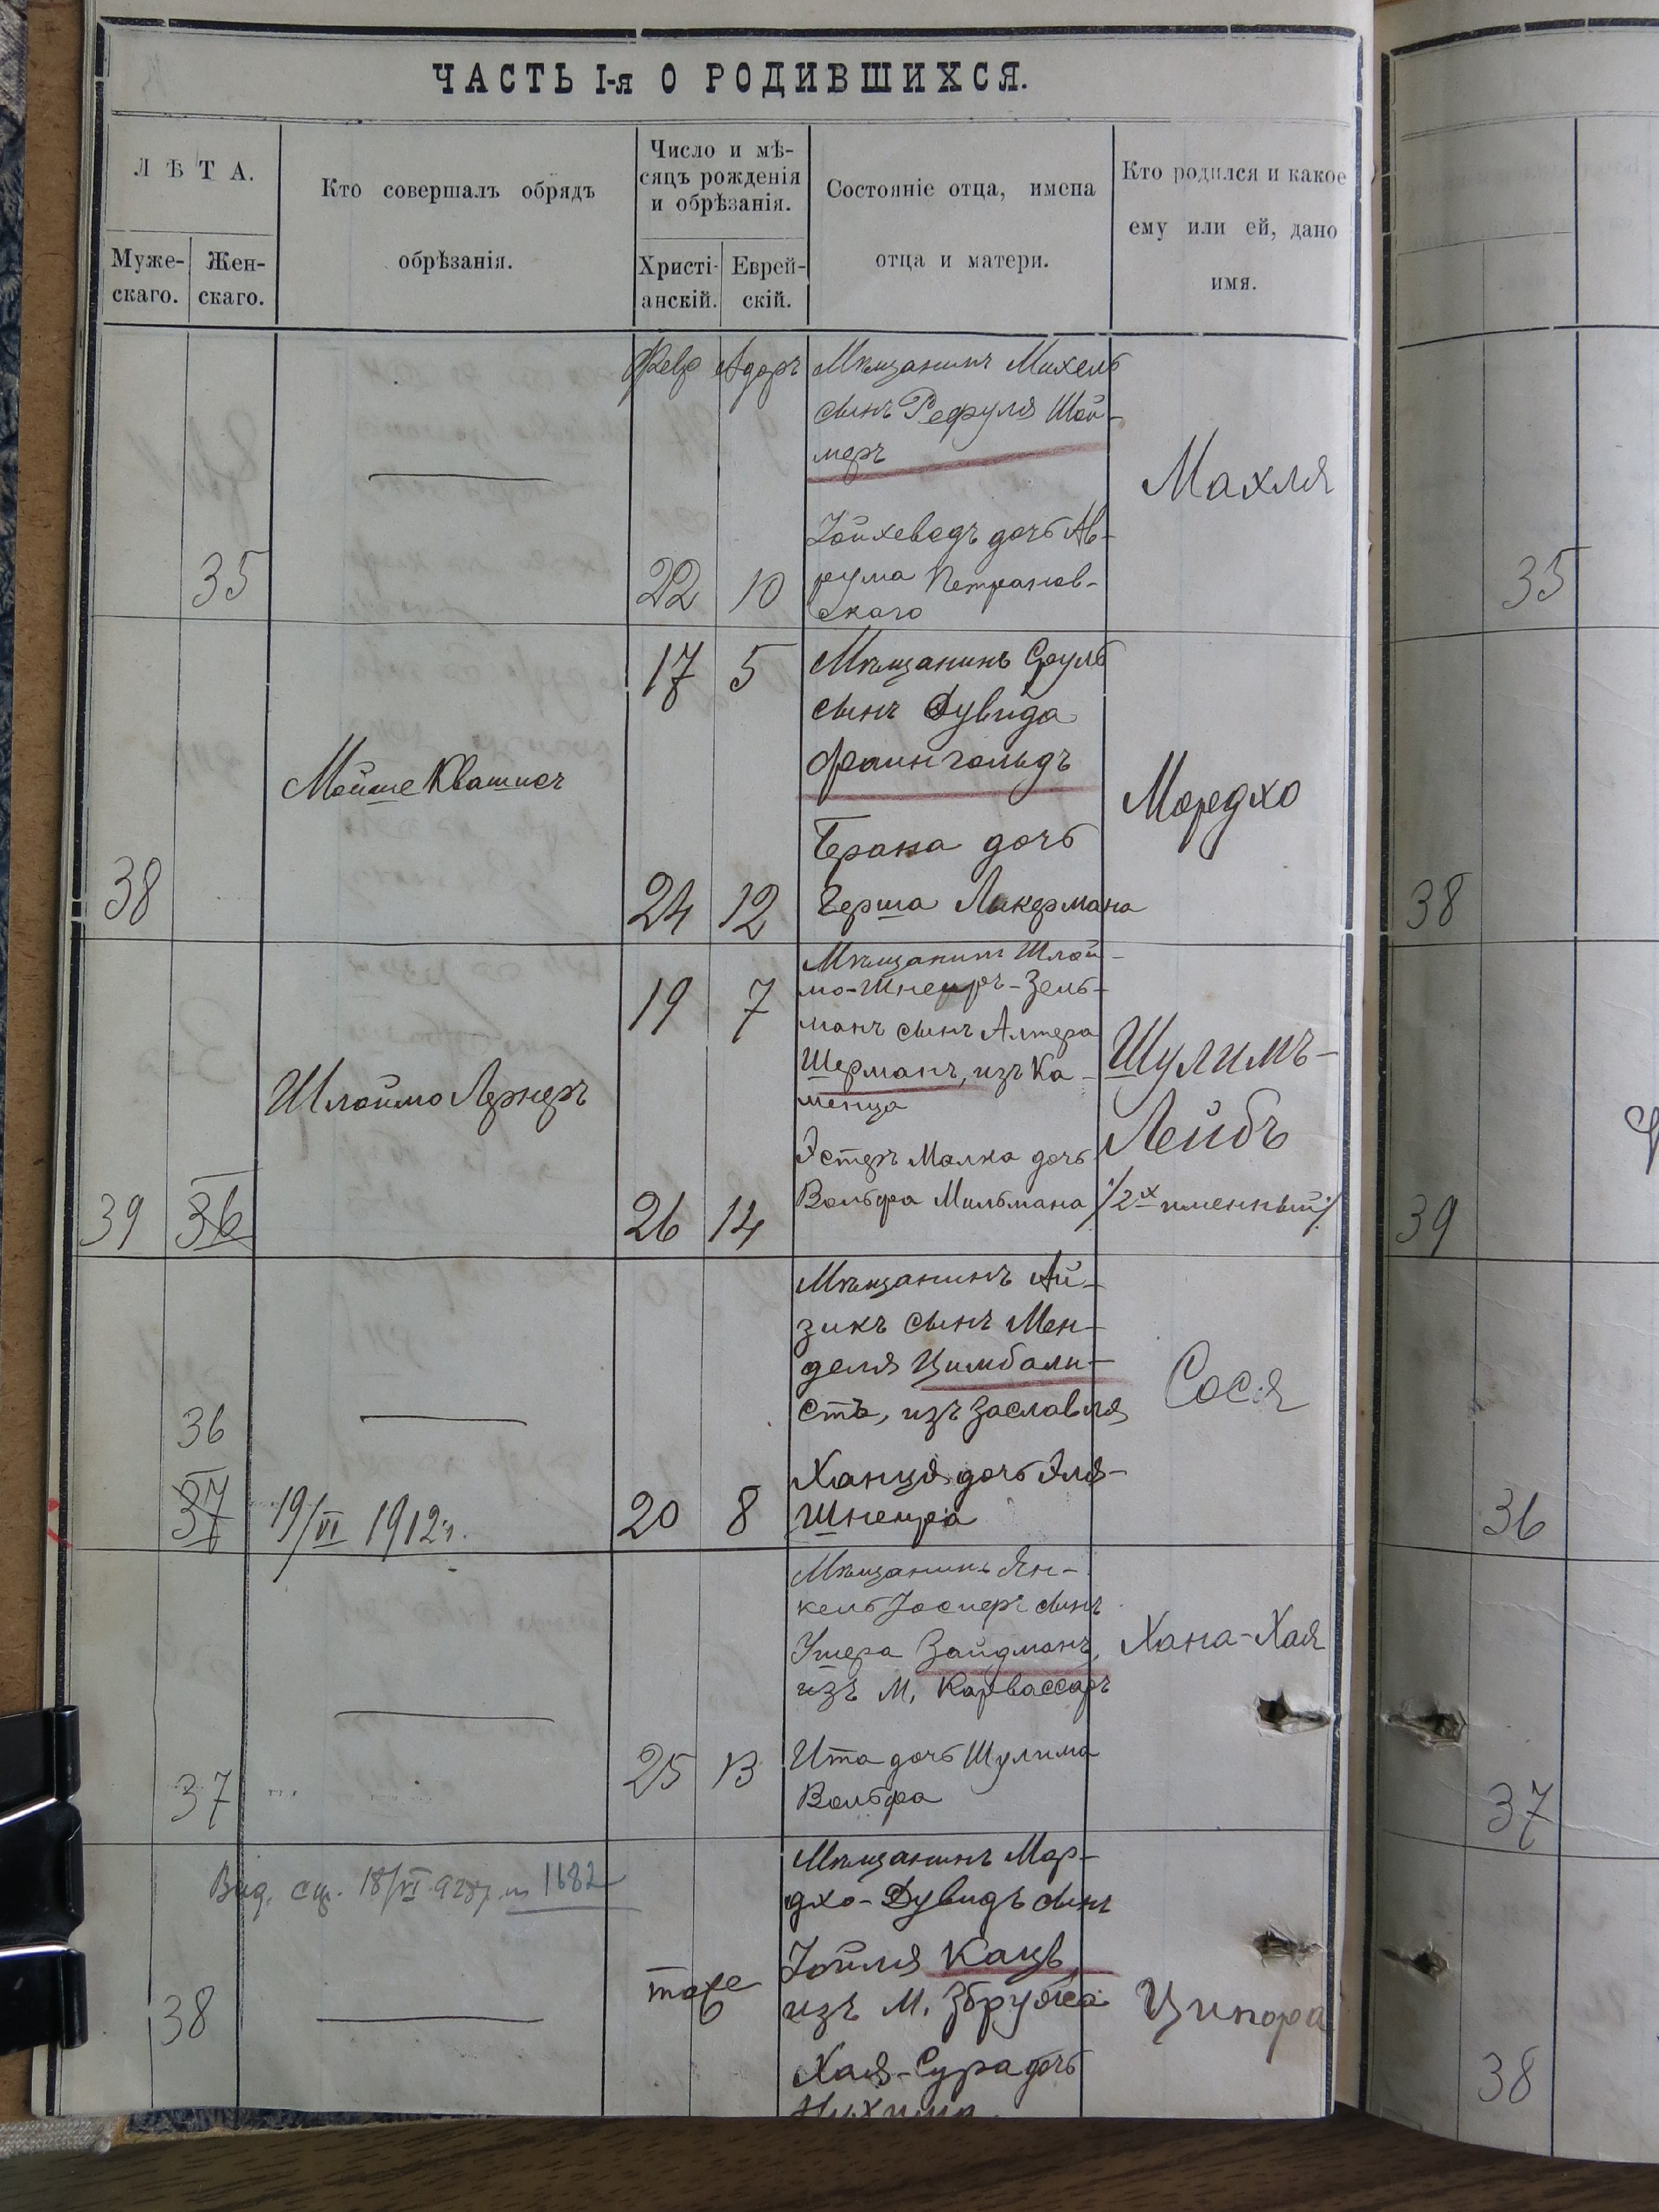 ЧАСТЬ I-я О РОДИВШИХСЯ.
ЛѢТА.
Муже-
скаго.
Жен-
скаго.
Кто совершалъ обрядъ
обрѣзанія.
Число и мѣ-
сяцъ рожденія
и обрѣзанія.
Христі-
анскій.
Еврей-
скій.
Состояніе отца, имена
отца и матери.
Кто родился и какое
ему или ей, дано
имя.
35
Февр Адоръ
22 10
Мѣщанинъ Михель
сынъ Рефуля Шой-
меръ
Іойхеведъ дочь Ав-
рума Петранов-
скаго
Махля
35
38
Мойше Квашнеч
17 5
24 12
Мѣщанинъ Сруль
сынъ Дувида
Фаингольдъ
Брана дочь
Герша Ликермана
Мордхо
38
39 36
Шлоймо Лернеръ
19 7
26 14
Мѣщанинъ Шлой-
мо-Шнеиръ-Зель-
манъ сынъ Алтера
Шерманъ, изъ Ка-
менца
Эстеръ Малка дочь
Вольфа Мильмана
Шулимъ-
Лейбъ
/2х именный/
39
36
37
19/VI 1912 г.
20 8
Мѣщанинъ Ай-
зикъ сынъ Мен-
деля Цимбали-
стъ, изъ Заславля
Ханця дочь Эля-
Шнеира
Сося
36
37
25 13
Мѣщанинъ Ян-
кель Іосиеръ сынъ
Ушера Зайдманъ,
изъ м. Карвассаръ
Ита дочь Шулима
Вольфа
Хана-Хая
37
Выд. сп. 18/VI 928 г. № 1682
38
тоже
Мѣщанинъ Мор-
дхо-Дувидъ сынъ
Іойля Кацъ,
изъ м. Збружа
Хая-Сура дочь
Ципора
38